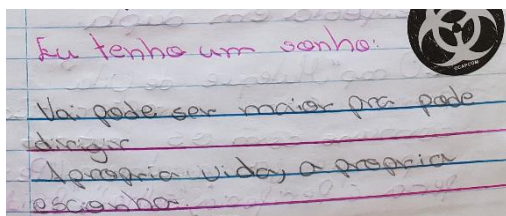 Eu tenho um sonho:
©CAPCOM
Vai pode ser maior pra pode
dirigir
A propria vida, a propria
escanha.